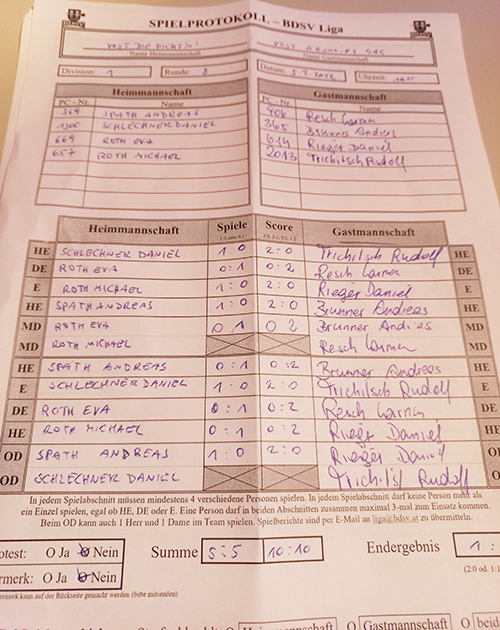 SPIELPROTOKOLL – BDSV Liga
Name Heimmannschaft
Division: 1 Runde: 8 Datum: Uhrzeit:
Heimmannschaft Gastmannschaft
PC - Nr. Name PC - Nr. Name
369 SPATH ANDREAS 906 Resch Carmen
1300 SCHLECHNER DANIEL 365 Brunner Andreas
669 ROTH EVA 614 Rieger Daniel
657 ROTH MICHAEL 2013 Trichitsch Rudolf
Heimmannschaft Spiele Score Gastmannschaft
HE SCHLECHNER DANIEL 1 0 2:0 Trichitsch Rudolf HE
DE ROTH EVA 0:1 0:2 Resch Carmen DE
E ROTH MICHAEL 1:0 2:0 Rieger Daniel E
HE SPATH ANDREAS 1:0 2:0 Brunner Andreas HE
MD ROTH EVA 0 1 0 2 Brunner Andreas MD
MD ROTH MICHAEL Resch Carmen MD
HE SPATH ANDREAS 0:1 0:2 Brunner Andreas HE
E SCHLECHNER DANIEL 1:0 2:0 Trichitsch Rudolf E
DE ROTH EVA 0:1 0:2 Resch Carmen DE
HE ROTH MICHAEL 0:1 0:2 Rieger Daniel HE
OD SPATH ANDREAS 1:0 2:0 Rieger Daniel OD
OD SCHLECHNER DANIEL Trichitsch Rudolf OD
In jedem Spielabschnitt müssen mindestens 4 verschiedene Personen spielen. In jedem Spielabschnitt darf keine Person mehr als
ein Einzel spielen, egal ob HE, DE oder E. Eine Person darf in beiden Abschnitten zusammen maximal 3-mal zum Einsatz kommen.
Beim OD kann auch 1 Herr und 1 Dame im Team spielen. Spielberichte sind per E-Mail an liga@bdsv.at zu übermitteln.
otest: O Ja O Nein Summe 5:5 10:10 Endergebnis 1:
ermerk: O Ja O Nein (2:0 od. 1:1
ermerk kann auf der Rückseite gemacht werden (bitte mitsenden)
O Heimmannschaft O Gastmannschaft O beid